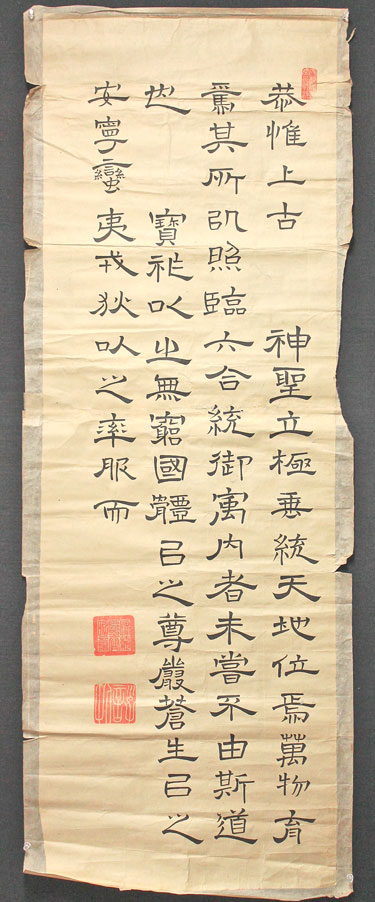 恭惟上古　神聖立極垂統天地位焉萬物育
焉其所以照臨六合統御寓内者未嘗不由斯道
也　寶祚以之無窮國體以之尊嚴蒼生以之
安寧蠻夷戎狄以之率服而